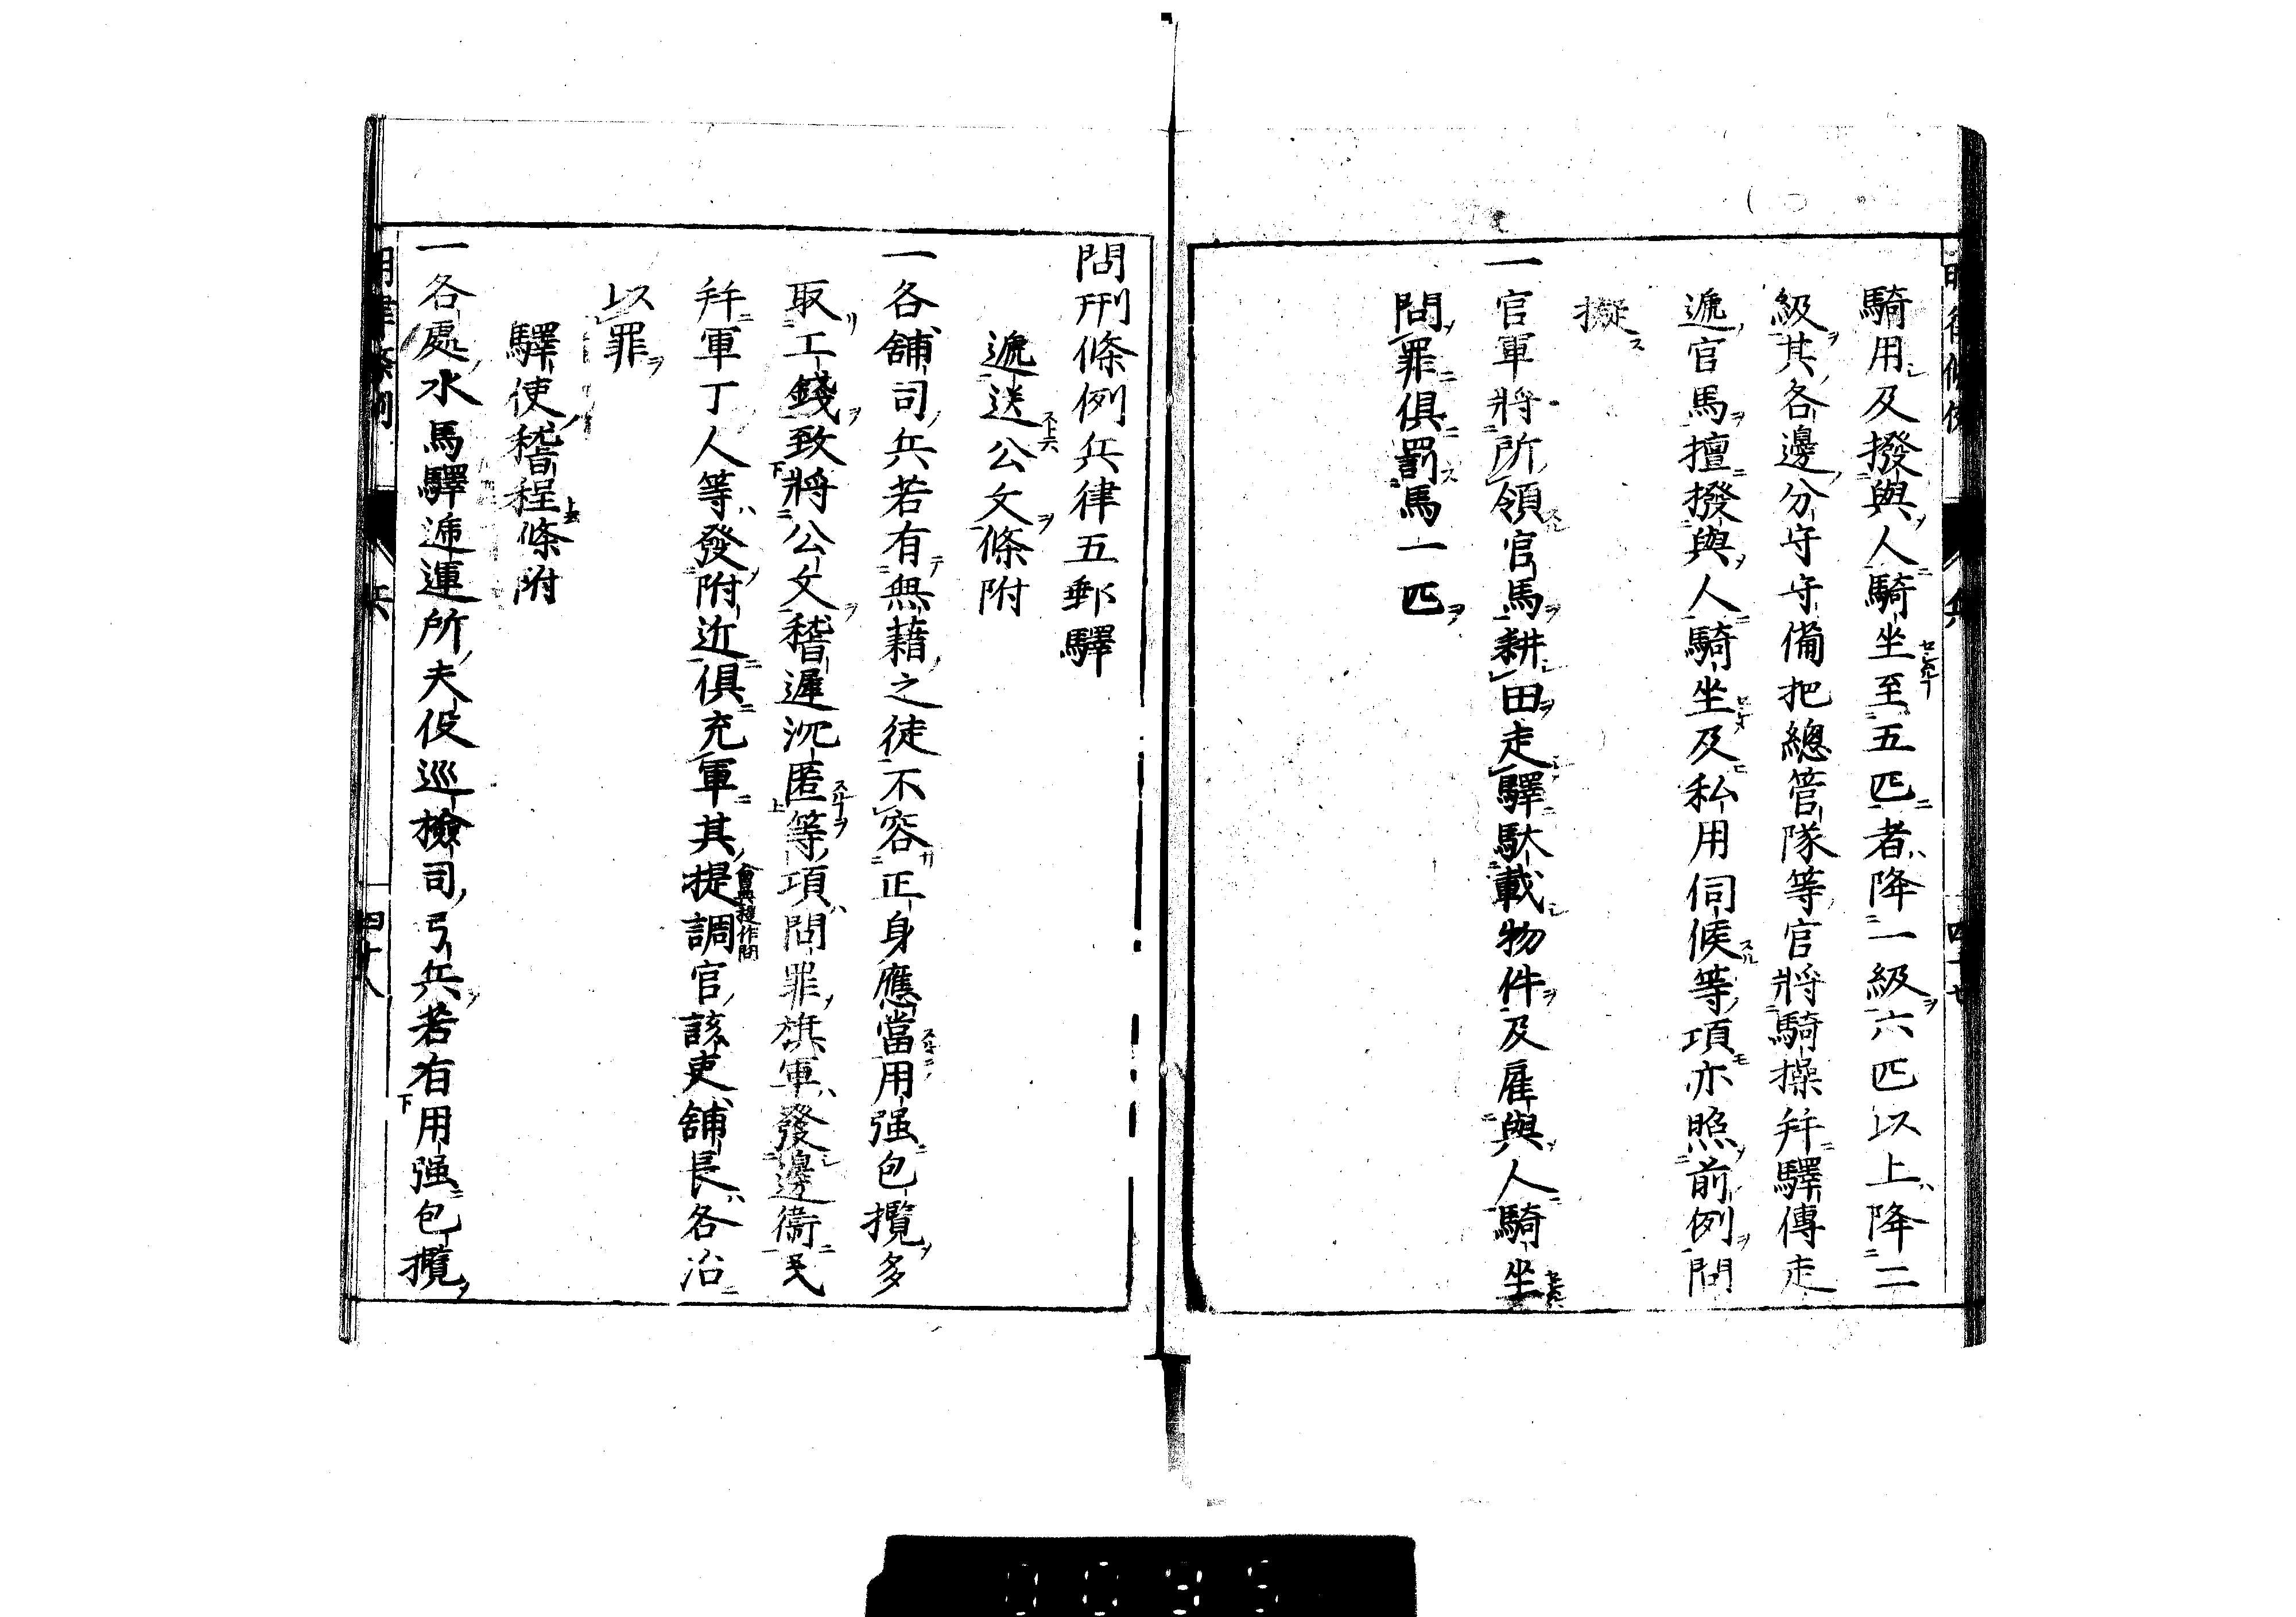 騎用及撥與人騎坐至五匹者降一級六匹以上降二
級其各邊分守守備把總管隊等官將騎操幷驛傳走
遞官馬擅撥與人騎坐及私用伺候等項亦照前例問
擬
一官軍將所領官馬耕田走驛馱載物件及雇與人騎坐
問罪俱罰馬一匹
問刑條例兵律五郵驛
遞送公文條附
一各舖司兵若有無藉之徒不容正身應當用强包攬多
取工錢致將公文稽遲沉匿等項問罪旗軍發邊衞民
幷軍丁人等發附近俱充軍其提調官該吏舖長各治
會典提作問
以罪
驛使稽程條附
一各處水馬驛遞運所夫役巡檢司弓兵若有用强包攬
明律條例 兵 四十八